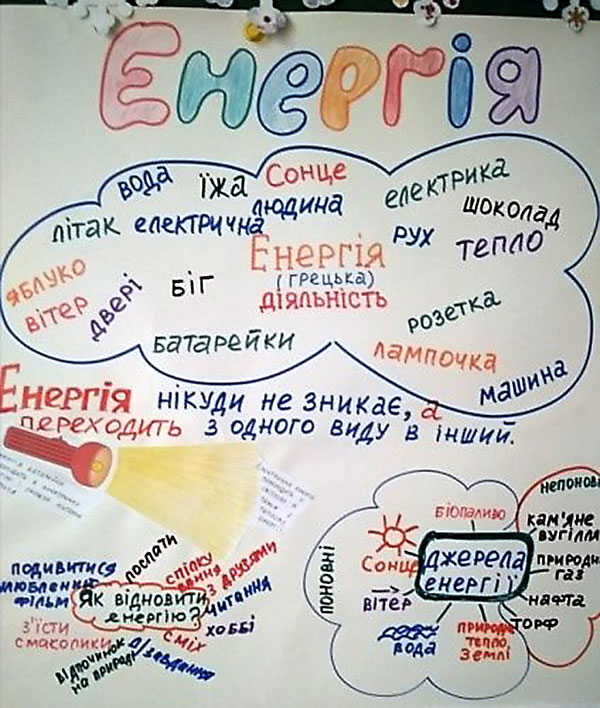 Енергія
вода
їжа
Сонце
електрика
літак
електрична
людина
шоколад
рух
тепло
Енергія
(грецька)
діяльність
яблуко
вітер
двері
біг
розетка
батарейки
лампочка
машина
Енергія нікуди не зникає, а
переходить з одного виду в інший.
Як відновити
енергію?
послати
спілку
вання
з друзями
читання
хоббі
сміх
д/завдання
відпочинок
на природі
з'їсти
смаколики
подивитися
улюблений
фільм
джерела
енергії
поновні
біопаливо
Сонце
вітер
вода
природнє
тепло
Землі
непоновні
кам'яне
вугілля
природній
газ
нафта
торф